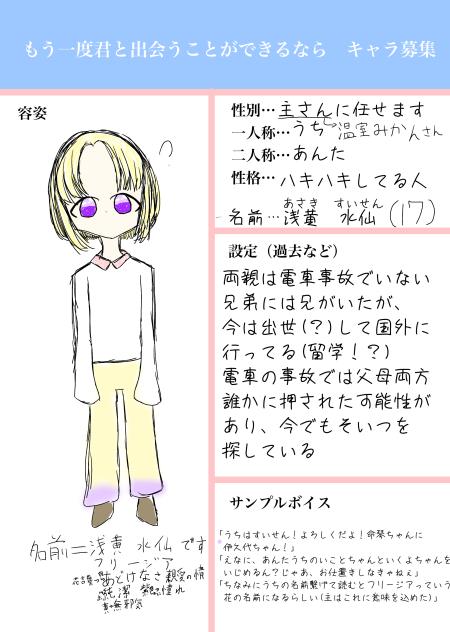 もう一度君と出会うことができるなら　キャラ募集
容姿
性別…主さんに任せます
一人称…うち 温室みかんさん
二人称…あんた
性格…ハキハキしてる人
あさぎ すいせん
名前…浅黄 水仙(17)
設定（過去など）
両親は電車事故でいない
兄弟には兄がいたが、
今は出世(？)して国外に
行ってる(留学！？)
電車の事故では父母両方
誰かに押された可能性が
あり、今でもそいつを
探している
サンプルボイス
「うちはすいせん！よろしくだよ！命琴ちゃんに
伊久代ちゃん！」
「えなに、あんたうちのいことちゃんといくよちゃんを
いじめるん？じゃあ、お仕置きしなきゃねぇ」
「ちなみにうちの名前繋げて読むとフリージアっていう
花の名前になるらしい(主はこれに意味を込めた)」
名前=浅黄 水仙です
フリージア
あどけなさ 親愛の情
純潔 憧れ
無邪気